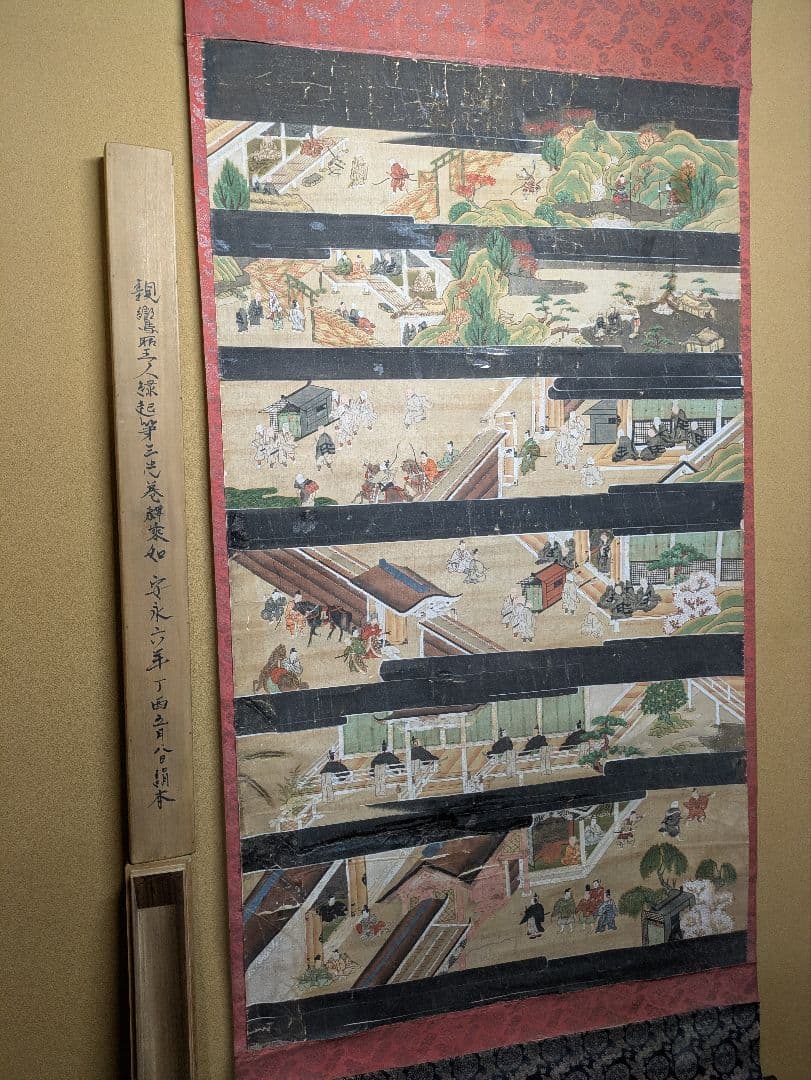 親鸞聖人縁起第三巻 釋乘如 安永六年丁酉五月八日絹本